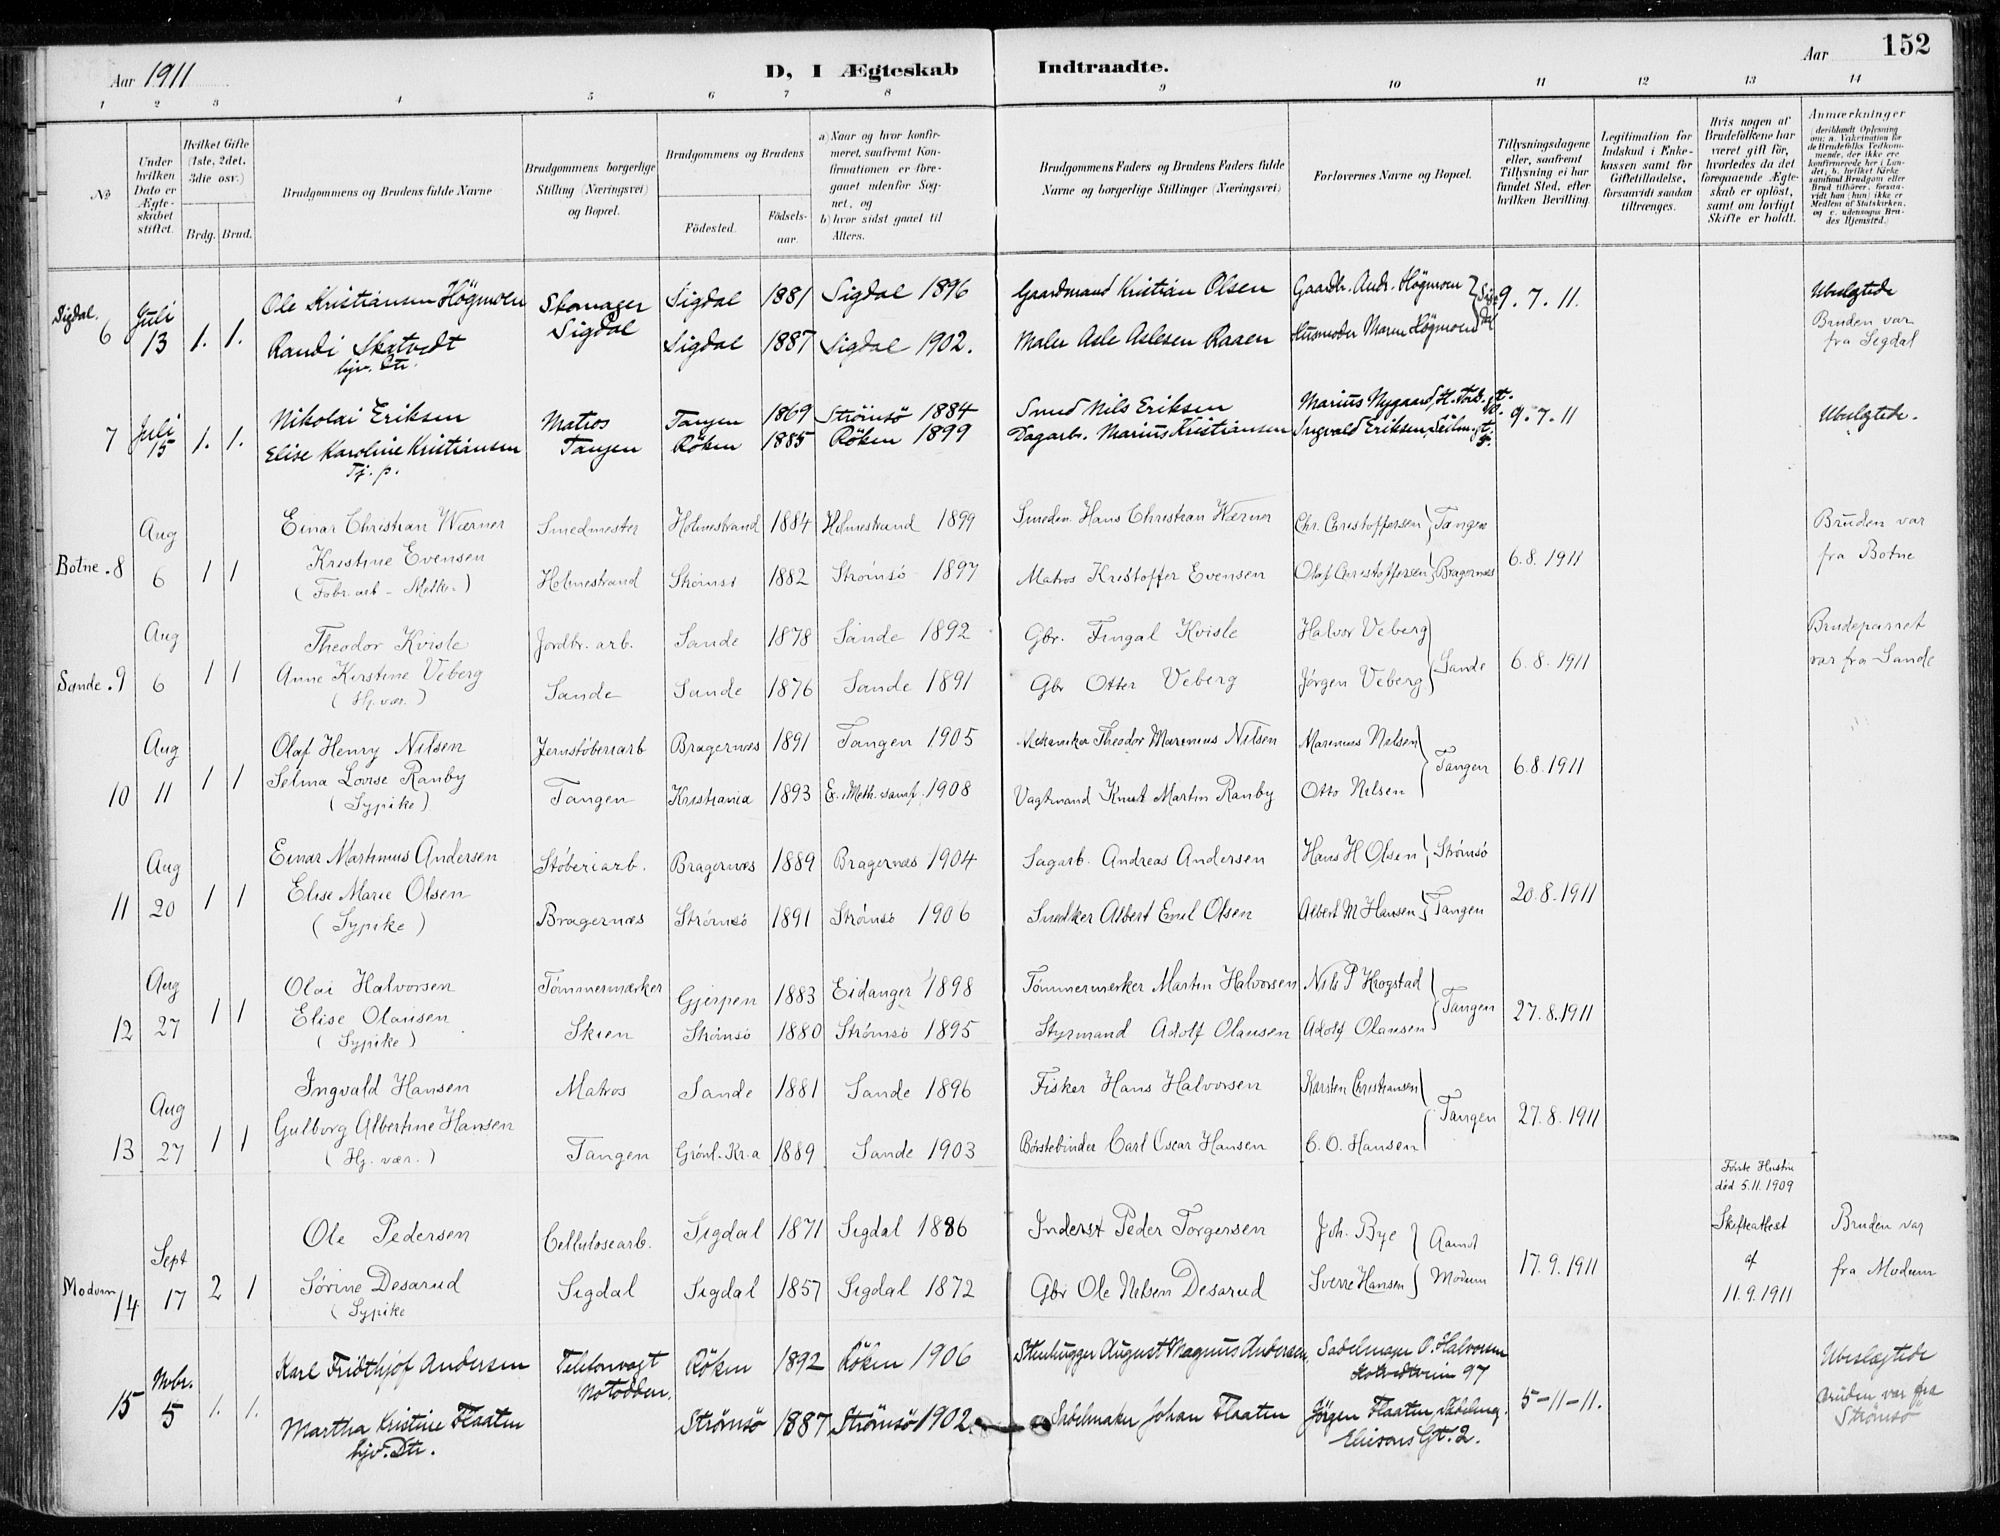 152
Aar 1911
D, I Ægteskab
Indtraadte.
Aar
1 2 3 4 5 6 7 8 9 10 11 12 13 14
No
Under hvilken Dato er Ægteskabet stiftet.
Hvilket Gifte (1ste, 2det, 3die osv.)
Brdg. Brud.
Brudgommens og Brudens fulde Navne
Brudgommens borgerlige Stilling (Næringsvei) og Bopæl.
Brudgommens og Brudens
Fødested.
Fødselsaar.
a) Naar og hvor konfirmeret, saafremt Konfirmationen er foregaaet udenfor Sognet, og
b) hvor sidst gaaet til Alters.
Brudgommens Faders og Brudens Faders fulde Navne og borgerlige Stillinger (Næringsvei)
Forlovernes Navne og Bopæl.
Tillysningsdagene eller, saafremt Tillysning ei har fundet Sted, efter hvilken Bevilling.
Legitimation for Indskud i Enkekassen samt for Giftetilladelse, forsaavidt saadan tiltrænges.
Hvis nogen af Brudefolkene har været gift før, hvorledes da det foregaaende Ægteskab er opløst, samt om lovligt Skifte er holdt.
Anmærkninger
(deriblandt Oplysning om: a. Vakcination for de Brudefolks Vedkommende, der ikke ere konfirmerede her i Landet; b. hvilket Kirkesamfund Brudgom eller Brud tilhører, forsaavidt han (hun) ikke er Medlem af Statskirken, og c. udensogns Brudes Hjemsted.)
Sigdal. 6 Juli 13 1. 1. Ole Kristiansen Högmoen Skomager Sigdal Sigdal 1881 Sigdal 1896 Gaardmand Kristian Olsen Gaardbr. Andr. Högmoen 9. 7. 11. Ubeslægtede
Randi Skatvedt hjv. Dtr. Sigdal 1887 Sigdal 1902. Maler Asle Aslesen Raaen Husmoder Maren Högmoen Bruden var fra Sigdal
7 Juli 15 1. 1. Nikolai Eriksen Matros Tangen Tangen 1869 Strömsö 1884 Smed Nils Eriksen Marius Nygaard 9. 7. 11 Ubeslægtede.
Elise Karoline Kristiansen Tj. p. Röken 1885 Röken 1899 Dagarb. Marius Kristiansen Ingvald Eriksen
Botne. 8 Aug 6 1 1 Einar Christian Wærner Smedmester Holmestrand Holmestrand 1884 Holmestrand 1899 Smeden Hans Christian Wærner Chr. Christoffersen Tangen 6.8.1911 Bruden var fra Botne
Kristine Evensen (Fabr. arb - Melk.) Strømsø 1882 Strømsø 1897 Matros Kristoffer Evensen Olaf Christoffersen Bragernæs
Sande. 9 Aug 6 1 1 Theodor Kvisle Jordbr. arb. Sande Sande 1878 Sande 1892 Gbr. Fingal Kvisle Halvor Veberg Sande 6.8.1911 Brudeparret var fra Sande
Anne Kirstine Veberg (Hj. vær.) Sande 1876 Sande 1891 Gbr Otter Veberg Jørgen Veberg
10 Aug 11 1 1 Olaf Henry Nilsen Jernstøberiarb Tangen Bragernæs 1891 Tangen 1905 Mekaniker Theodor Marinius Nilsen Marinius Nilsen Tangen 6.8.1911
Selma Lovise Ranby (Sypike) Kristiania 1893 E. Meth. samf. 1908 Vagtmand Knut Martin Ranby Otto Nilsen
11 Aug 20 1 1 Einar Martinius Andersen Støberiarb. Bragernæs Bragernæs 1889 Bragernæs 1904 Sagarb. Andreas Andersen Hans H Olsen Strømsø 20.8.1911
Elise Marie Olsen (Sypike) Strømsø 1891 Strømsø 1906 Snedker Albert Emil Olsen Albert M Hansen Tangen
12 Aug 27 1 1 Olai Halvorsen Tømmermærker Skien Gjerpen 1883 Eidanger 1898 Tømmermerker Martin Halvorsen Nils P Krogstad Tangen 27.8.1911
Elise Olausen (Sypike) Strømsø 1880 Strømsø 1895 Styrmand Adolf Olausen Adolf Olausen
13 Aug 27 1 1 Ingvald Hansen Matros Tangen Sande 1881 Sande 1896 Fisker Hans Halvorsen Karsten Christiansen Tangen 27.8.1911
Gulborg Albertine Hansen (Hj. vær.) Grønl. Kr.a 1889 Sande 1903 Børstebinder Carl Oscar Hansen C. O. Hansen
Modum 14 Sept 17 2 1 Ole Pedersen Cellulosearb. Sigdal Sigdal 1871 Sigdal 1886 Inderst Peder Torgersen Joh. Bye Aamot 17.9.1911 Første Hustru død 5.11.1909 Skifteattest af 11.9.1911 Bruden var fra Modum
Sørine Desarud (Sypike Sigdal 1857 Sigdal 1872 Gbr Ole Nilsen Desarud Sverre Hansen Modum
15 Nvbr. 5 1. 1. Karl Fridthjof Andersen Telefonvagt Notodden. Röken 1892 Röken 1906 Stenhugger August Magnus Andersen, Sadelmager O. Halvorsen 97 5-11-11. Ubeslægtede Bruden var fra Strömsö
Martha Kristine Flaaten hjv. Dtr. Strömsö 1887 Strömsö 1902. Sadelmaker Johan Flaaten Jörgen Flaaten Gt. 2.